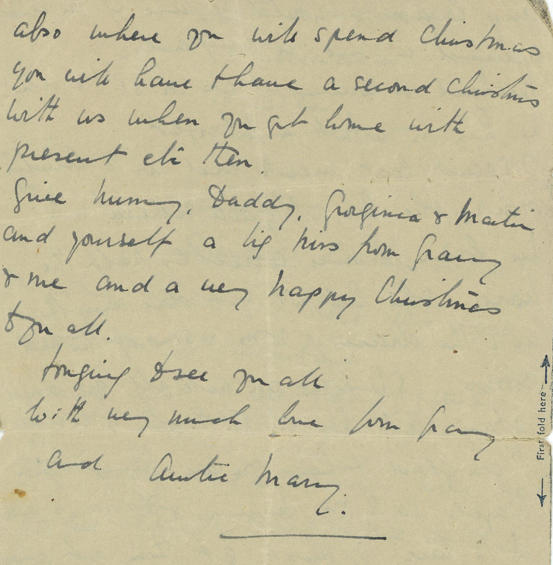 also where you will spend Christmas
you will have to have a second Christmas
with us when you get home with
present etc then.
Give Mummy, Daddy, Georginia & Martin
and yourself a big kiss from Granny
& me and a very happy Christmas
to you all.
Longing to see you all
With very much love from Granny
and Auntie Mary.
First fold here